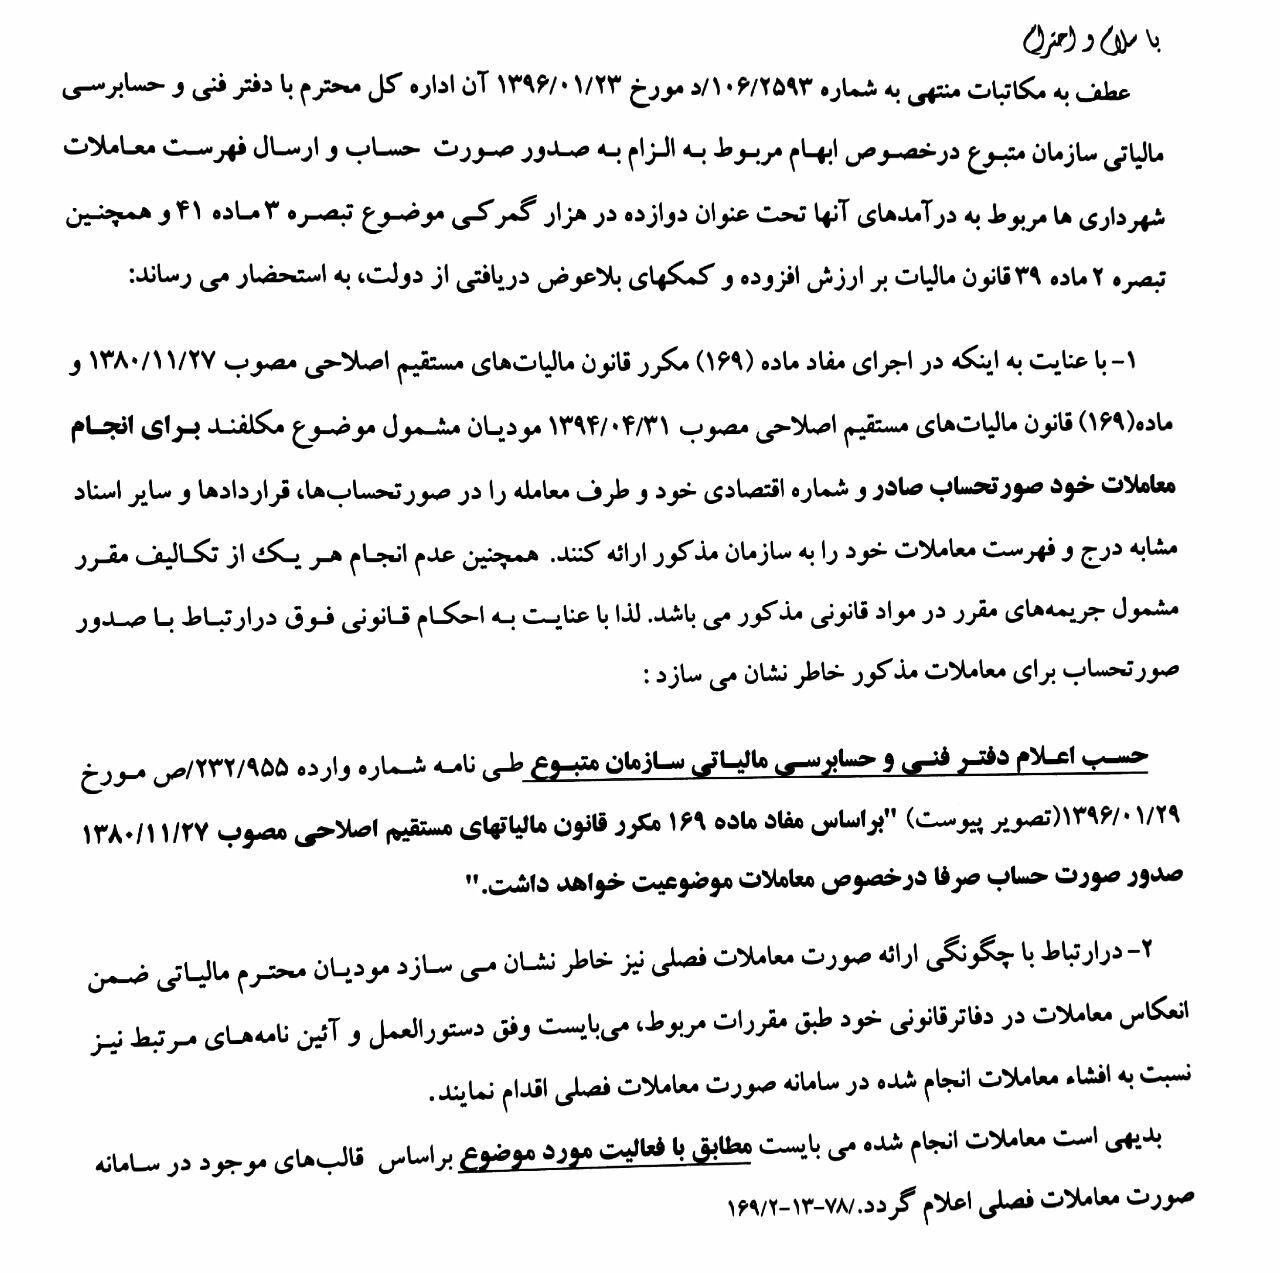 با سلام و احترام
عطف به مکاتبات منتهی به شماره ۱۰۶/۲۵۹۳/د مورخ ۱۳۹۶/۰۱/۲۳ آن اداره کل محترم با دفتر فنی و حسابرسی
مالیاتی سازمان متبوع درخصوص ابهام مربوط به الزام به صدور صورت حساب و ارسال فهرست معاملات
شهرداری ها مربوط به درآمدهای آنها تحت عنوان دوازده در هزار گمرکی موضوع تبصره ۳ ماده ۴۱ و همچنین
تبصره ۲ ماده ۳۹ قانون مالیات بر ارزش افزوده و کمکهای بلاعوض دریافتی از دولت، به استحضار می رساند:
۱- با عنایت به اینکه در اجرای مفاد ماده (۱۶۹) مکرر قانون مالیات‌های مستقیم اصلاحی مصوب ۱۳۸۰/۱۱/۲۷ و
ماده(۱۶۹) قانون مالیات‌های مستقیم اصلاحی مصوب ۱۳۹۴/۰۴/۳۱ مودیان مشمول موضوع مکلفند برای انجام
معاملات خود صورتحساب صادر و شماره اقتصادی خود و طرف معامله را در صورتحساب‌ها، قراردادها و سایر اسناد
مشابه درج و فهرست معاملات خود را به سازمان مذکور ارائه کنند. همچنین عدم انجام هر یک از تکالیف مقرر
مشمول جریمه‌های مقرر در مواد قانونی مذکور می باشد. لذا با عنایت به احکام قانونی فوق درارتباط با صدور
صورتحساب برای معاملات مذکور خاطر نشان می سازد :
حسب اعلام دفتر فنی و حسابرسی مالیاتی سازمان متبوع طی نامه شماره وارده ۲۳۲/۹۵۵/ص مورخ
۱۳۹۶/۰۱/۲۹(تصویر پیوست) "براساس مفاد ماده ۱۶۹ مکرر قانون مالیاتهای مستقیم اصلاحی مصوب ۱۳۸۰/۱۱/۲۷
صدور صورت حساب صرفا درخصوص معاملات موضوعیت خواهد داشت."
۲- درارتباط با چگونگی ارائه صورت معاملات فصلی نیز خاطر نشان می سازد مودیان محترم مالیاتی ضمن
انعکاس معاملات در دفاترقانونی خود طبق مقررات مربوط، می‌بایست وفق دستورالعمل و آئین نامه‌های مرتبط نیز
نسبت به افشاء معاملات انجام شده در سامانه صورت معاملات فصلی اقدام نمایند.
بدیهی است معاملات انجام شده می بایست مطابق با فعالیت مورد موضوع براساس قالب‌های موجود در سامانه
صورت معاملات فصلی اعلام گردد./۷۸-۱۳-۱۶۹/۲